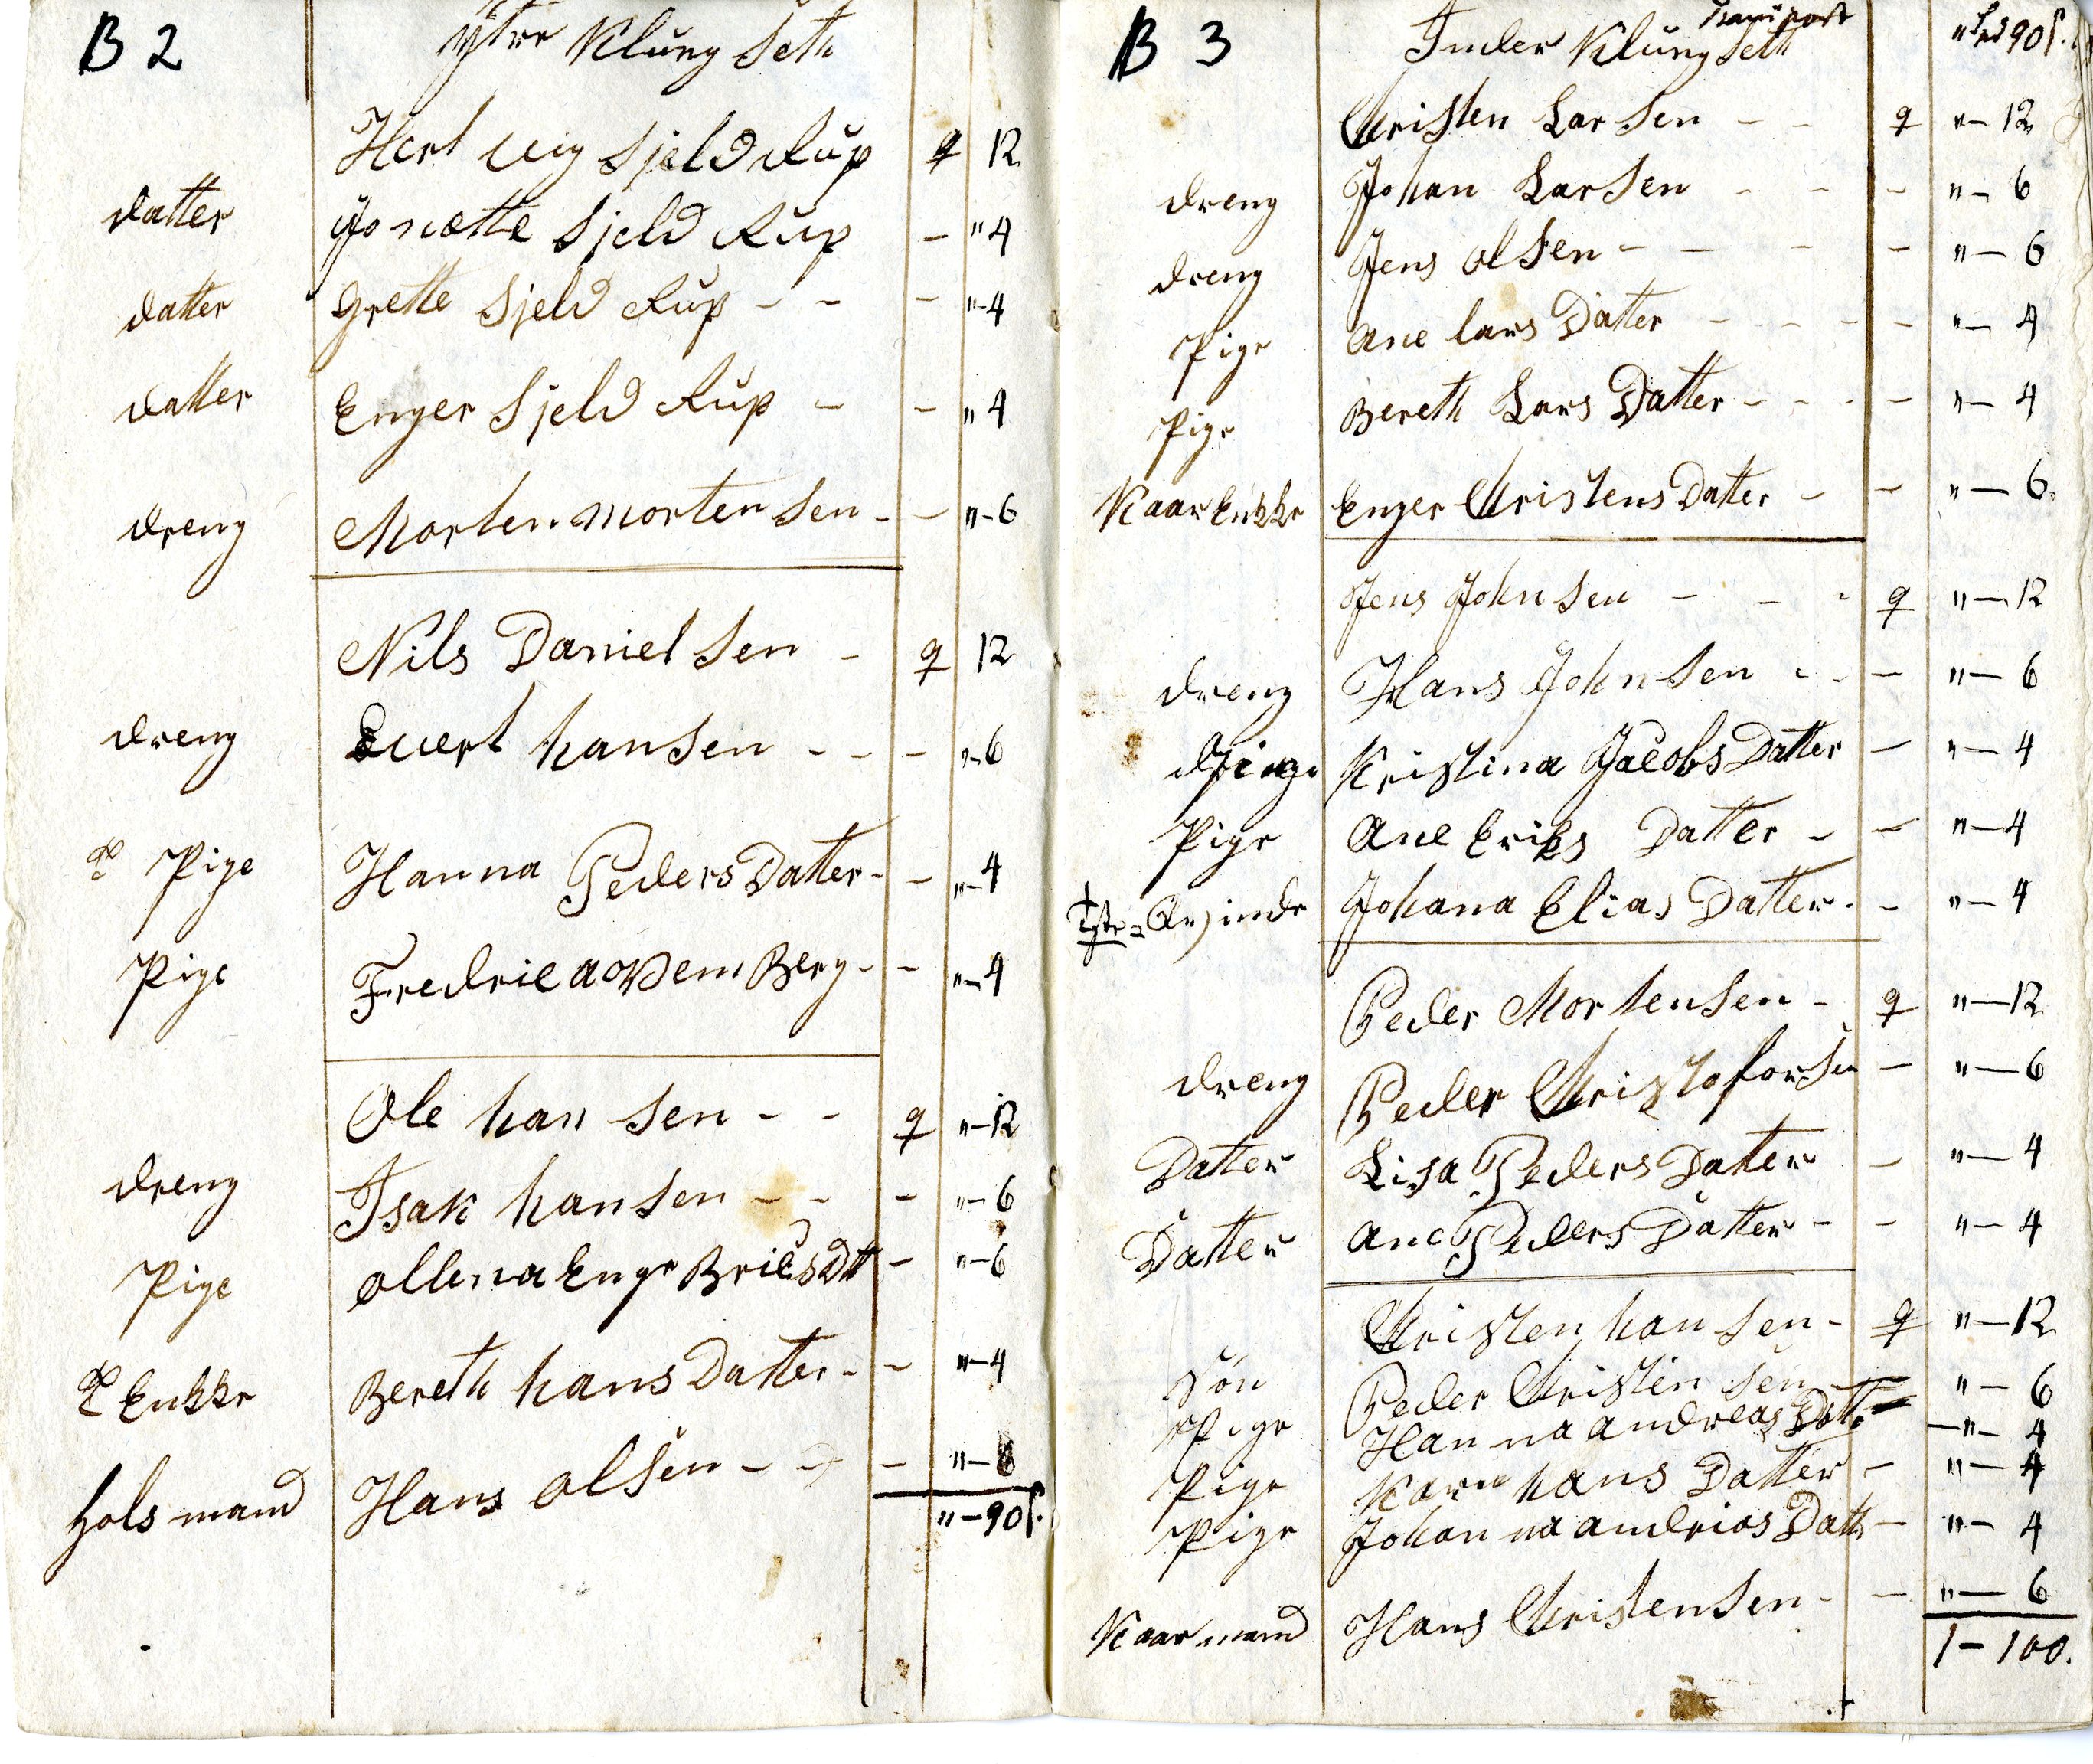 B 2
Ytre Klung Seth
Hert vig Sjeld Rup q 12
datter Jonætte Sjeld Rup - " 4
datter Grette Sjeld Rup - - - "-4
datter Enger Sjeld Rup - - " 4
dreng Morten morten Sen - - "-6
Nils Daniel Sen - q 12
dreng Evert hansen - - - "-6
Pige Hanna Peders Datter - - "-4
Pige Fredrica Berg - - "-4
Ole han sen - - q "-12
dreng Isak hansen - - - "-6
Pige Ollena Enge Bricts Dtt - "-6
Enkke Bereth hans Datter - - "-4
hols mand Hans olsen - - - "-6
"-90 s.
B 3
Transport
Inder Klung Seth " 90 s.
Christen Lar Sen - - q "-12
dreng Johan Lar Sen - - - "-6
dreng Jens ol sen - - - - "-6
Pige Ane lars Datter - - - - - "-4
Pige Bereth Lars Datter - - - - "-4
Kaar Enkke Enger Christens Datter - - "-6.
Jens John Sen - - - q "-12
dreng Hans John Sen - - - "-6
Pige Kristina Jacobs Datter - "-4
Pige Ane Eriks Datter - - "-4
Qvinde Johana Elias Datter - - "-4
Peder Mortensen - q "-12
dreng Peder Christoforsen - "-6
Datter Lisa Peders Datter - "-4
Datter Ane Peders Datter - - "-4
Christen han sen - q "-12
Sön Peder Christen sen - "-6
Pige Hanna andreas Datt - "-4
Pige Karn hans Datter - "-4
Pige Johan na andrias Datt - "-4
Kaar mand Hans Christensen - - "-6
1-100.